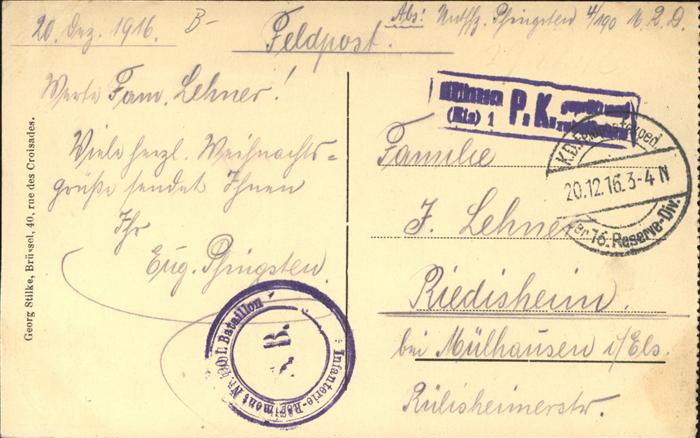 20. Dez. 1916. B-
Feldpost.
Abs: Untffz. Pfingsten 4/190 16. R. D.
Werte Fam. Lehner!
Viele herzl. Weihnachts-
grüße sendet Ihnen
Ihr
Eug. Pfingsten.
Georg Stilke, Brüssel, 40, rue des Croisades.
P. K.
(Els) 1
K.D. Feld
20.12.16. 3-4 N
16. Reserve-Div.
Familie
J. Lehner
Riedisheim.
bei Mülhausen i/Els.
Rülisheimerstr.
Infanterie-Regiment Bataillon
B.